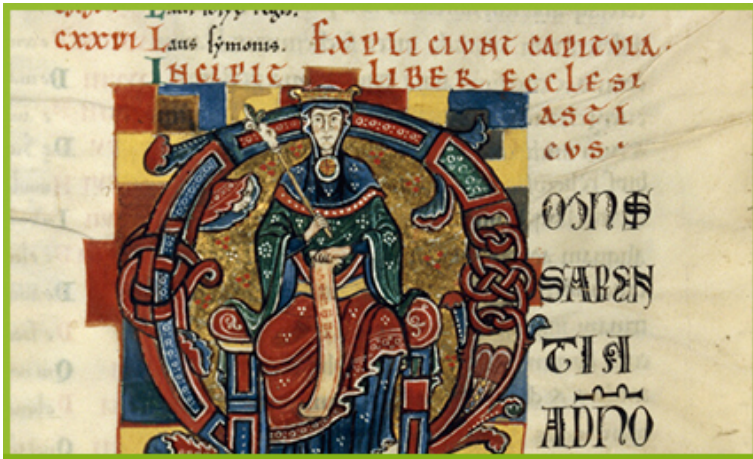 regis.
CXXVI Laus symonis. EXPLICIUNT CAPITULA.
INCIPIT LIBER ECCLESI
ASTI
CVS·
OMNS
SAPIEN
TIA
ADNO